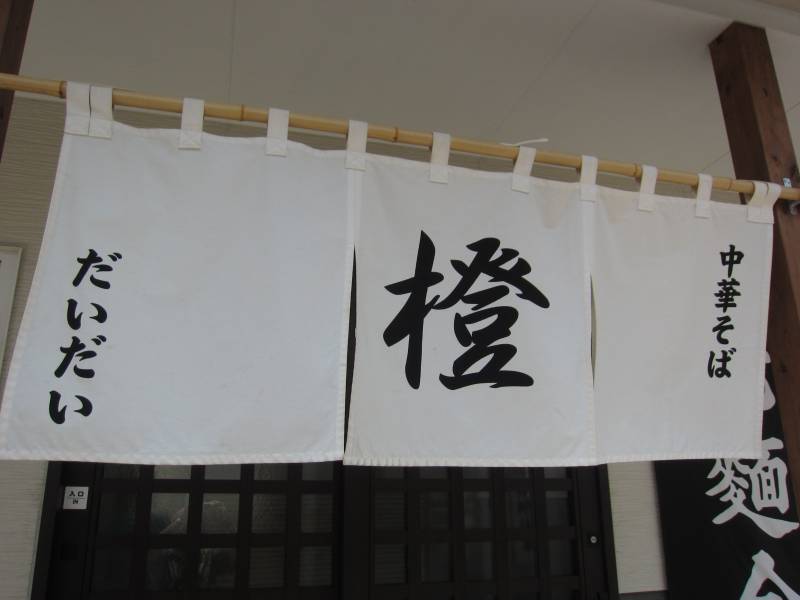 中華そば
橙
だいだい
入口
麺